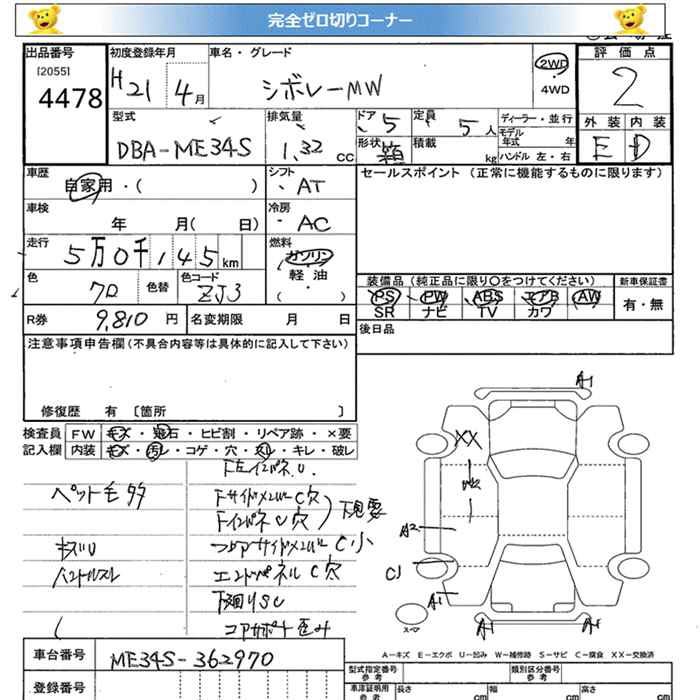 完全ゼロ切りコーナー
出品番号
[2055]
4478
初度登録年月
H21 4月
車名・グレード
シボレーMW
2WD
4WD
評価点
2
型式
DBA-ME34S
排気量
1,32 cc
ドア 5
形状 箱
定員 5人
積載 kg
ディーラー・並行
モデル年式 年
ハンドル 左・右
外装 内装
E D
車歴
自家用・( )
シフト
AT
セールスポイント(正常に機能するものに限ります)
車検
年 月( 日)
冷房
AC
走行
5万0千145km
燃料
ガソリン
軽油
( ・ )
色
クロ
色替
色コード
ZJ3
装備品(純正品に限り〇をつけてください)
PS PW ABS エアB AW
SR ナビ TV カワ
新車保証書
有・無
R券 9,810円
名変期限 月 日
後日品
注意事項申告欄(不具合内容等は具体的に記入して下さい)
修復歴 有〔箇所 〕
検査員 FW キズ・飛石・ヒビ割・リペア跡・×要
記入欄 内装 キズ・汚レ・コゲ・穴・スレ・キレ・破レ
ペット毛多
キズU
ハンドルスレ
下サイドメンバーC穴
下インパネU穴
下見要
エンドパネルC穴
下廻りSC
コアサポート歪み
A-1
XX
A2
C1
A-1
A-1
A-1
スペア
A-キズ E-エクボ U-凹み W-補修跡 S-サビ C-腐食 XX-交換済
車台番号
ME34S-362970
登録番号
型式指定番号
参考
類別区分番号
参考
車津証明用
参考
長さ cm
幅 cm
高さ cm